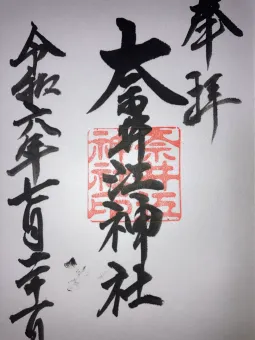 奉拝
奈井江神社
奈井江
神社印
令和六年七月二十日